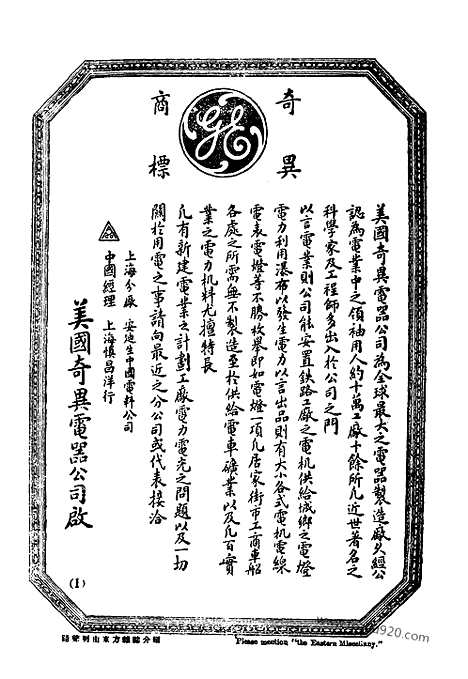 奇異
商標
GE
美國奇異電器公司為全球最大之電器製造廠久經公
認為電業中之領袖用人約十萬工廠十餘所凡近世著名之
科學家及工程師多出入於公司之門
以言電業則公司能安置鉄路工廠之電機供給城鄉之電燈
電力利用瀑布以發生電力以言出品則有大小各式電機電線
電表電燈等不勝枚舉即如電燈一項凡居家街市工商車船
各處之所需無不製造至於供給電車礦業以及凡百實
業之電力机料尤擅特長
凡有新建電業之計劃工廠電力電光之問題以及一切
關於用電之事請向最近之分公司或代表接洽
上海分廠 安迪生中國電料公司
中國經理 上海慎昌洋行
美國奇異電器公司啟
(1)
請聲明由東方雜誌介紹
Please mention "the Eastern Miscellany."